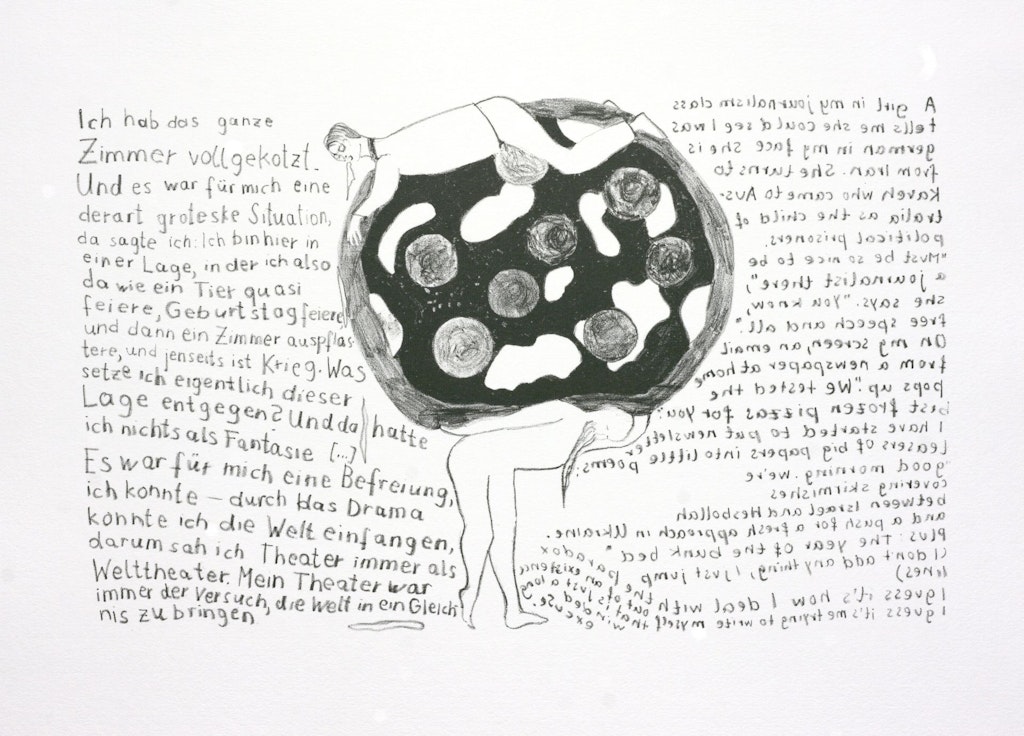 Ich hab das ganze
Zimmer vollgekotzt.
Und es war für mich eine
derart groteske Situation,
da sagte ich: Ich bin hier in
einer Lage, in der ich also
da wie ein Tier quasi
feiere, Geburtstag feiere
und dann ein Zimmer auspflas
tere, und jenseits ist Krieg. Was
setze ich eigentlich dieser
Lage entgegen? Und da hatte
ich nichts als Fantasie [...]
Es war für mich eine Befreiung,
ich konnte – durch das Drama
konnte ich die Welt einfangen,
darum sah ich Theater immer als
Welttheater. Mein Theater war
immer der Versuch, die Welt in ein Gleich
nis zu bringen
A girl in my journalism class
tells me she could see I was
german in my face she is
from Iran. She turns to
Kaveh who came to Aus-
tralia as the child of
political prisoners.
"Must be so nice to be
a journalist there",
she says. "You know,
free speech and all."
On my screen, an email
from a newspaper at home
pops up: "We tested the
best frozen pizzas for you"
I have started to put newsletter
teasers of big papers into little poems:
"good morning. we're
covering skirmishes
between Israel and Hesbollah
and a push for a fresh approach in Ukraine.
Plus: the year of the bunk bed"
(I don't add anything, I just jump
lines)
I guess it's how I deal with the paradox
of an existence
I guess it's me trying to write myself out of
that is just a long
winded excuse.